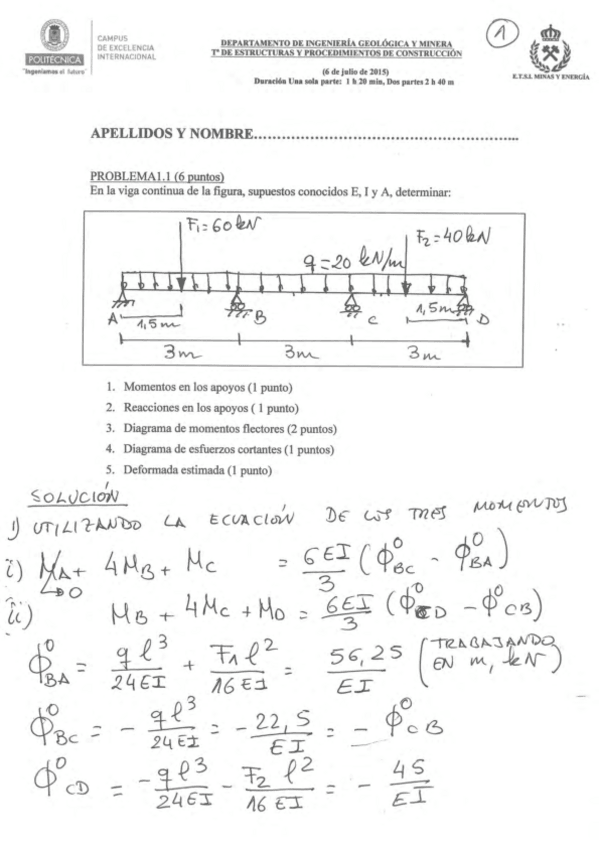 1
POLITÉCNICA
"Ingeniamos el futuro"
CAMPUS
DE EXCELENCIA
INTERNACIONAL
DEPARTAMENTO DE INGENIERÍA GEOLÓGICA Y MINERA
Tª DE ESTRUCTURAS Y PROCEDIMIENTOS DE CONSTRUCCIÓN
(6 de julio de 2015)
Duración Una sola parte: 1 h 20 min, Dos partes 2 h 40 m
E.T.S.I. MINAS Y ENERGÍA
APELLIDOS Y NOMBRE……………………………………………………..
PROBLEMA1.1 (6 puntos)
En la viga continua de la figura, supuestos conocidos E, I y A, determinar:
F₁=60kN
F₂=40kN
q=20 kN/m
A B C D
1,5m 1,5m
3m 3m 3m
1. Momentos en los apoyos (1 punto)
2. Reacciones en los apoyos ( 1 punto)
3. Diagrama de momentos flectores (2 puntos)
4. Diagrama de esfuerzos cortantes (1 puntos)
5. Deformada estimada (1 punto)
SOLUCIÓN
1) UTILIZANDO LA ECUACIÓN DE LOS TRES MOMENTOS
i) M_A + 4M_B + M_C = 6EI/3 (ϕ⁰_BC - ϕ⁰_BA)
→0
ii) M_B + 4M_C + M_D = 6EI/3 (ϕ⁰_CD - ϕ⁰_CB)
ϕ⁰_BA = ql³/24EI + F₁l²/16EI = 56,25/EI (TRABAJANDO EN m, kN)
ϕ⁰_BC = - ql³/24EI = - 22,5/EI = - ϕ⁰_CB
ϕ⁰_CD = -ql³/24EI - F₂l²/16EI = - 45/EI